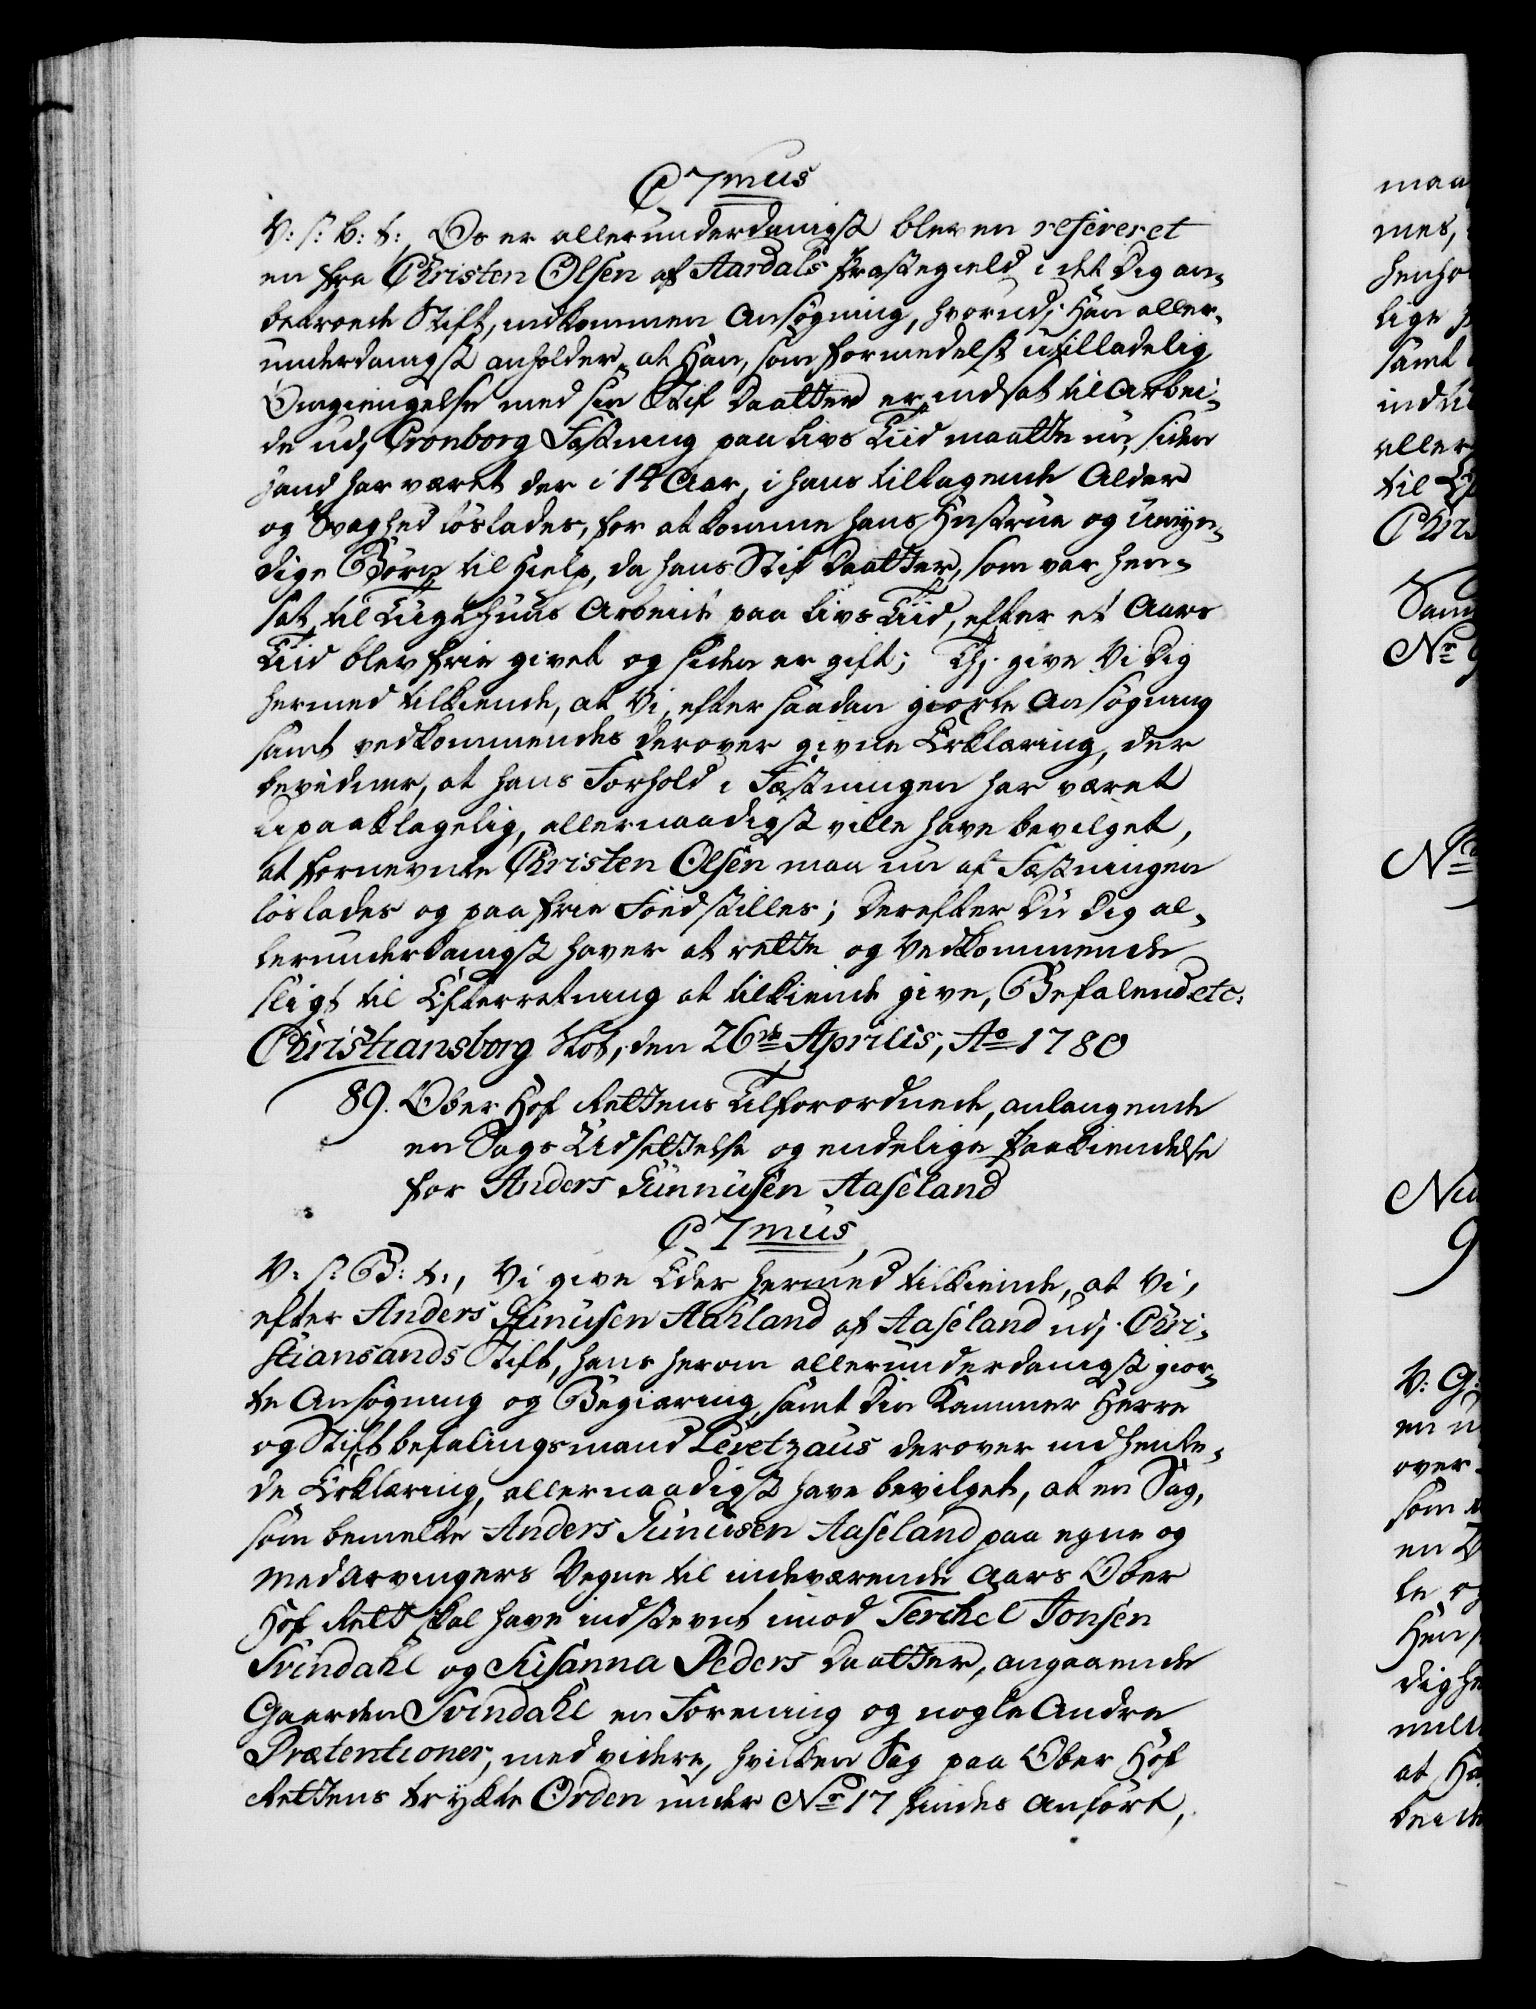 C 7mus
V: s: b: t:, Os er allerunderdanigst bleven refereret
en fra Christen Olsen af Aardals Præstegield i det Dig an-
betroede Stift, indkommen Ansøgning, hvorudj Han aller-
underdanigst anholder, at Han, som formedelst utilladelig
Omgiengelse med sin Stif Daatter er indsat til Arbei-
de udj Cronborg Fæstning paa Livs Tiid maatte nu, siden
hand har været der i 14 Aar, i hans tiltagende Alder
og Svaghed løslades, for at komme hans Hustrue og umyn-
dige Børn til Hielp, da hans Stif Daatter, som var hen-
sat til Tugthuus Arbeide paa Livs Tiid, efter et Aars
Tiid blev frie givet og siden er gift; Thj give Vi Dig
hermed tilkiende, at Vi, efter saadan giorte Ansøgning
samt vedkommendes derover givne Erklæring, der
bevidner, at hans Forhold i Fæstningen har været
upaaklagelig, allernaadigst ville have bevilget,
at fornevnte Christen Olsen maa nu af Fæstningen
løslades og paa frie Foed stilles; Derefter Du Dig al-
lerunderdanigst haver at rette og Vedkommende
sligt til Efterretning at tilkiende give, Befalend etc:
Christiansborg Slot, den 26de Aprilis, Ao 1780
89. Ober Hof Rettens Tilforordnede, anlangende
en Sags Udsettelse og endelige Paakiendelse
for Anders Gunnusen Aaseland
C 7mus
V: s: B: t:, Vi give Eder hermed tilkiende, at Vi,
efter Anders Gunusen Aahland af Aaseland udj Chri-
stiansands Stift, hans herom allerunderdanigst gior-
te Ansøgning og Begiæring, samt Din Kammer Herre
og Stiftbefalingsmand Levetzaus derover indhente-
de Erklæring, allernaadigst have bevilget, at en Sag,
som bemelte Anders Gunusen Aaseland paa egne og
Medarvingers Vegne til indeværende Aars Ober
Hof Rett skal have indstevnt imod Terchel Jonsen
Svindahl og Susanna Peders Daatter, angaaende
Gaarden Svindahl en Forening og nogle Andre
Prætentioner, med videre, hvilken Sag paa Ober Hof
Rettens trykte Orden under No 17 findes anført,